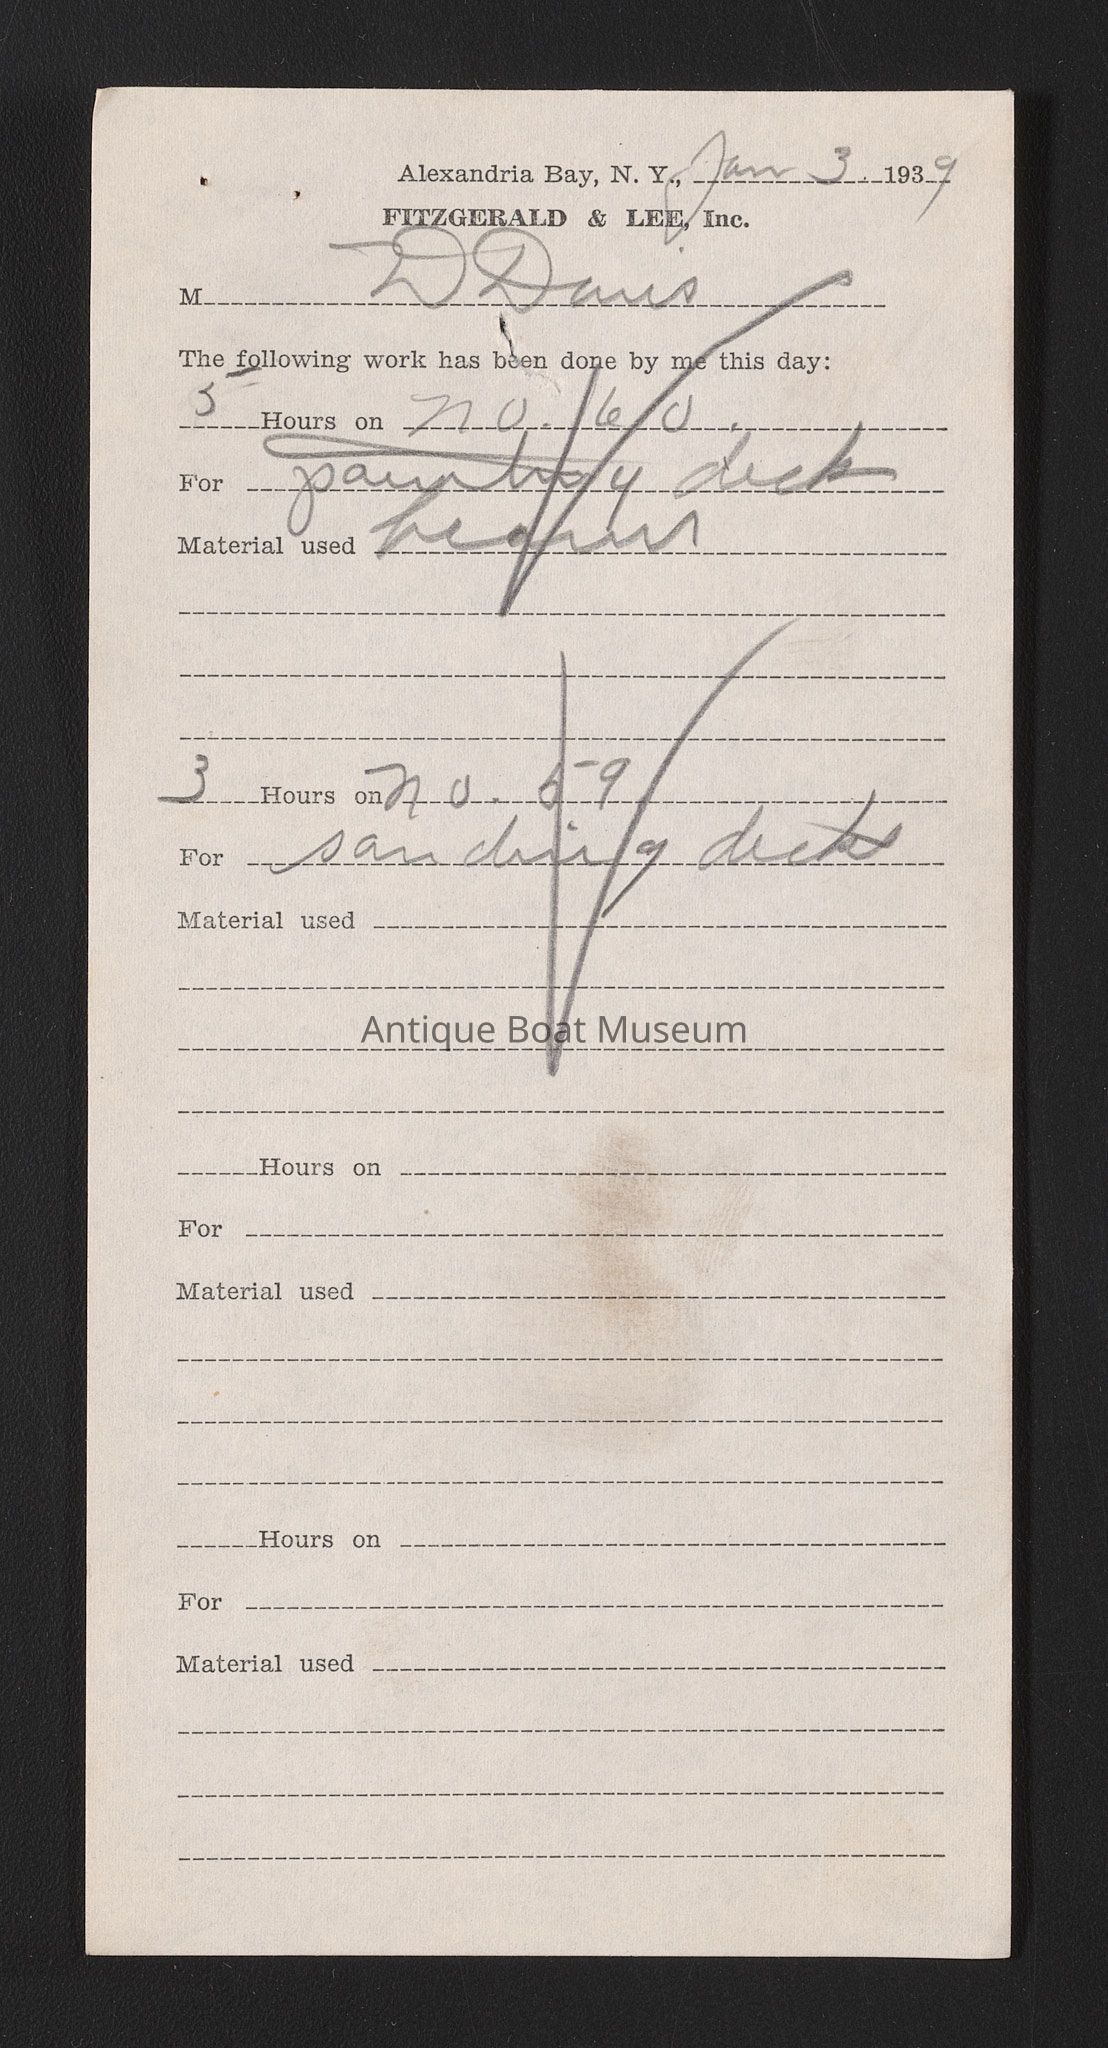 Alexandria Bay, N. Y., Jan 3 1939
FITZGERALD & LEE, Inc.
M D Davis
The following work has been done by me this day:
5 Hours on no. 60.
For painting deck
Material used beams
3 Hours on no. 59
For sanding decks
Material used
Antique Boat Museum
Hours on
For
Material used
Hours on
For
Material used